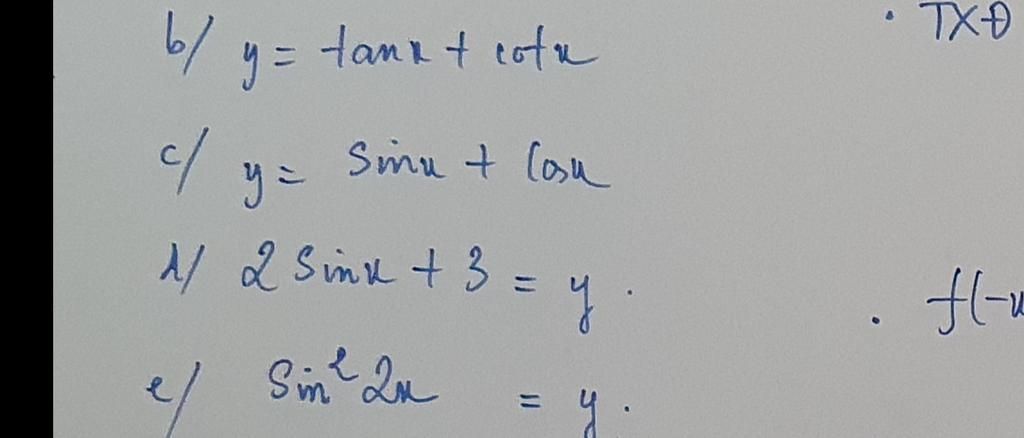 b/ y = tanx + cotx
• TXĐ
c/ y = sinx + cosx
d/ 2 sinx + 3 = y.
• f(-x
e/ sin² 2x = y.